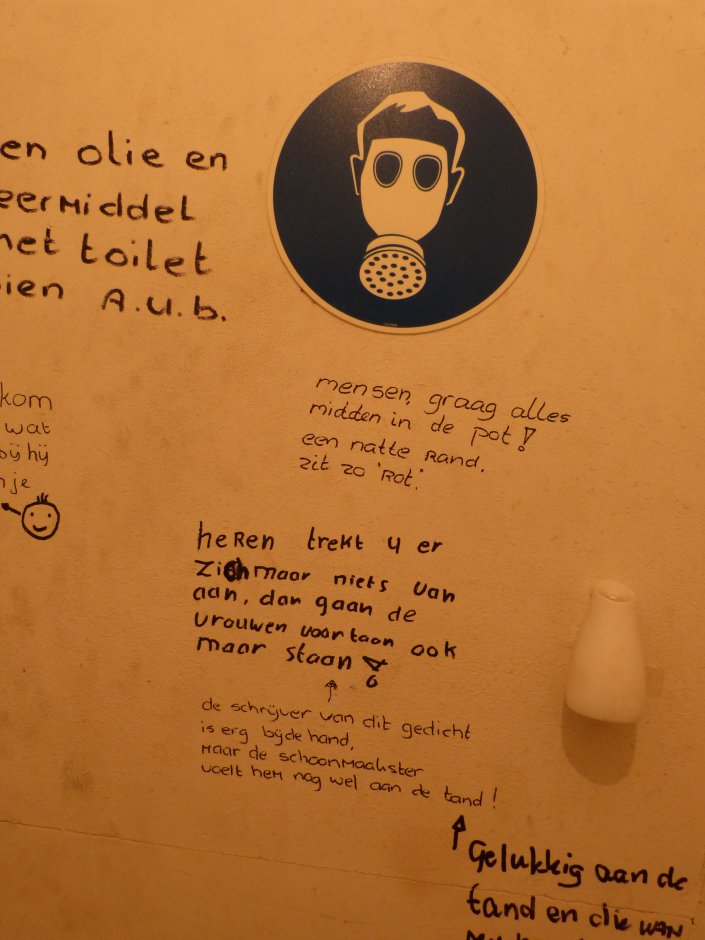 en olie en
eermiddel
het toilet
ien A.U.b.
kom
wat
bij hij
nje
mensen, graag alles
midden in de pot!
een natte Rand,
zit zo 'Rot'.
heren trekt u er
zich maar niets van
aan, dan gaan de
vrouwen voortaan ook
maar staan!
de schrijver van dit gedicht
is erg bijdehand,
maar de schoonmaakster
voelt hem nog wel aan de tand!
Gelukkig aan de
tand en die van